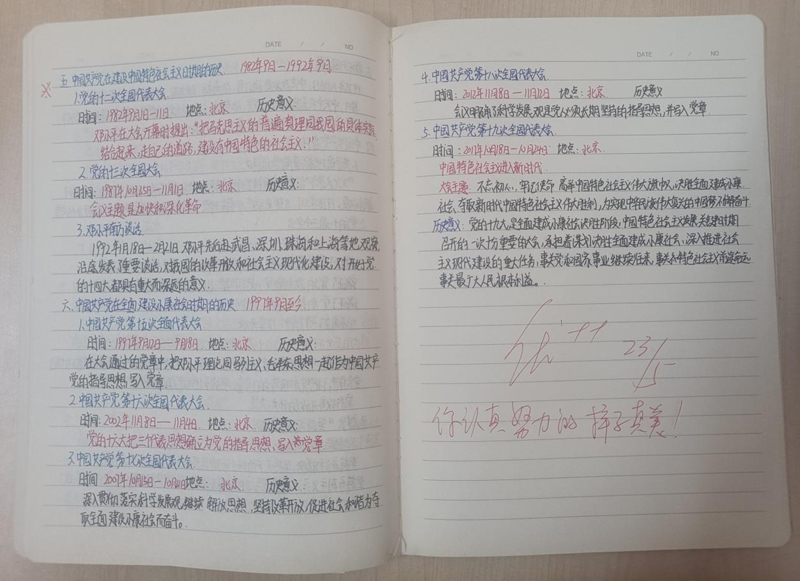 DATE / / NO
五. 中国共产党在建设中国特色社会主义时期的历史 1982年9月—1992年9月
1.党的十二次全国代表大会
时间：1982年9月1日—11日 地点：北京 历史意义
邓小平在大会开幕时提出："把马克思主义的普遍真理同我国的具体实际
结合起来，走自己的道路，建设有中国特色的社会主义."
2.党的十三次全国代表大会
时间：1987年10月25日—11月1日 地点：北京 历史意义：
会议主题是加快和深化改革
3.邓小平南方谈话
1992年1月18日—2月21日 邓小平先后赴武昌、深圳、珠海和上海等地视察
沿途发表了重要谈话，对我国的改革开放和社会主义现代化建设，对开好党
的十四大都具有重大而深远的意义
六. 中国共产党在全面建设小康社会时期的历史 1997年9月至今
1.中国共产党第十五次全国代表大会
时间：1997年9月12日—9月18日 地点：北京 历史意义：
在大会通过的党章中，把邓小平理论同马列主义，毛泽东思想一起作为中国共产
党的指导思想，写入党章
2.中国共产党第十六次全国代表大会
时间：2002年11月8日—11月14日 地点：北京 历史意义：
党的十六大把三个代表思想确立为党的指导思想，写入党章
3.中国共产党第十七次全国代表大会
时间 2007年10月15日—10月21日 地点： 北京 历史意义
深入贯彻落实科学发展观，继续解放思想 坚持改革开放，促进社会和谐为夺
取全面建设小康社会而奋斗。
DATE / / NO
4.中国共产党第十八次全国代表大会
时间：2012年11月8日—11月14日 地点：北京 历史意义
会议明确了科学发展观是党必须长期坚持的指导思想，并写入党章
5.中国共产党第十九次全国代表大会
时间：2017年10月18日—10月24日 地点：北京
中国特色社会主义进入新时代
大会主题：不忘初心，牢记使命 高举中国特色社会主义伟大旗帜，决胜全面建成小康
社会、夺取新时代中国特色社会主义伟大胜利，为实现中华民族伟大复兴的中国梦不懈奋斗
历史意义：党的十九大，是全面建成小康社会决胜阶段，中国特色社会主义发展关键时期
召开的一次十分重要的大会，承担着谋划决胜全面建成小康社会，深入推进社会
主义现代化建设的重大任务，事关党和国家事业继往开来，事关中国特色社会主义前途命运
事关最广大人民根本利益。
优++ 23/5
你认真努力的样子真美！